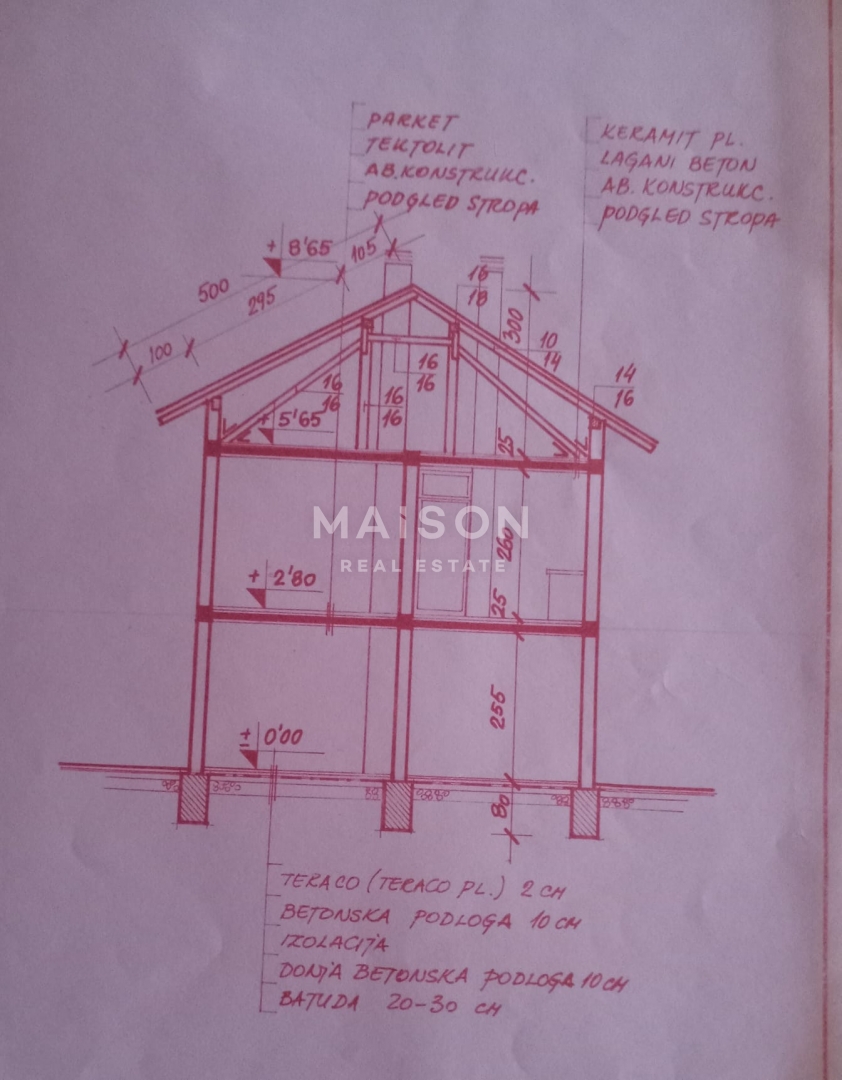 PARKET
TEKTOLIT
AB.KONSTRUKC.
PODGLED STROPA
KERAMIT PL.
LAGANI BETON
AB. KONSTRUKC.
PODGLED STROPA
+ 8'65
105
500
295
100
16
18
300
10
14
16
16
16
16
16
16
14
16
+ 5'65
25
MAISON
REAL ESTATE
260
+ 2'80
25
255
± 0'00
80
TERACO (TERACO PL.) 2 CM
BETONSKA PODLOGA 10 CM
IZOLACIJA
DONJA BETONSKA PODLOGA 10 CM
BATUDA 20-30 CM